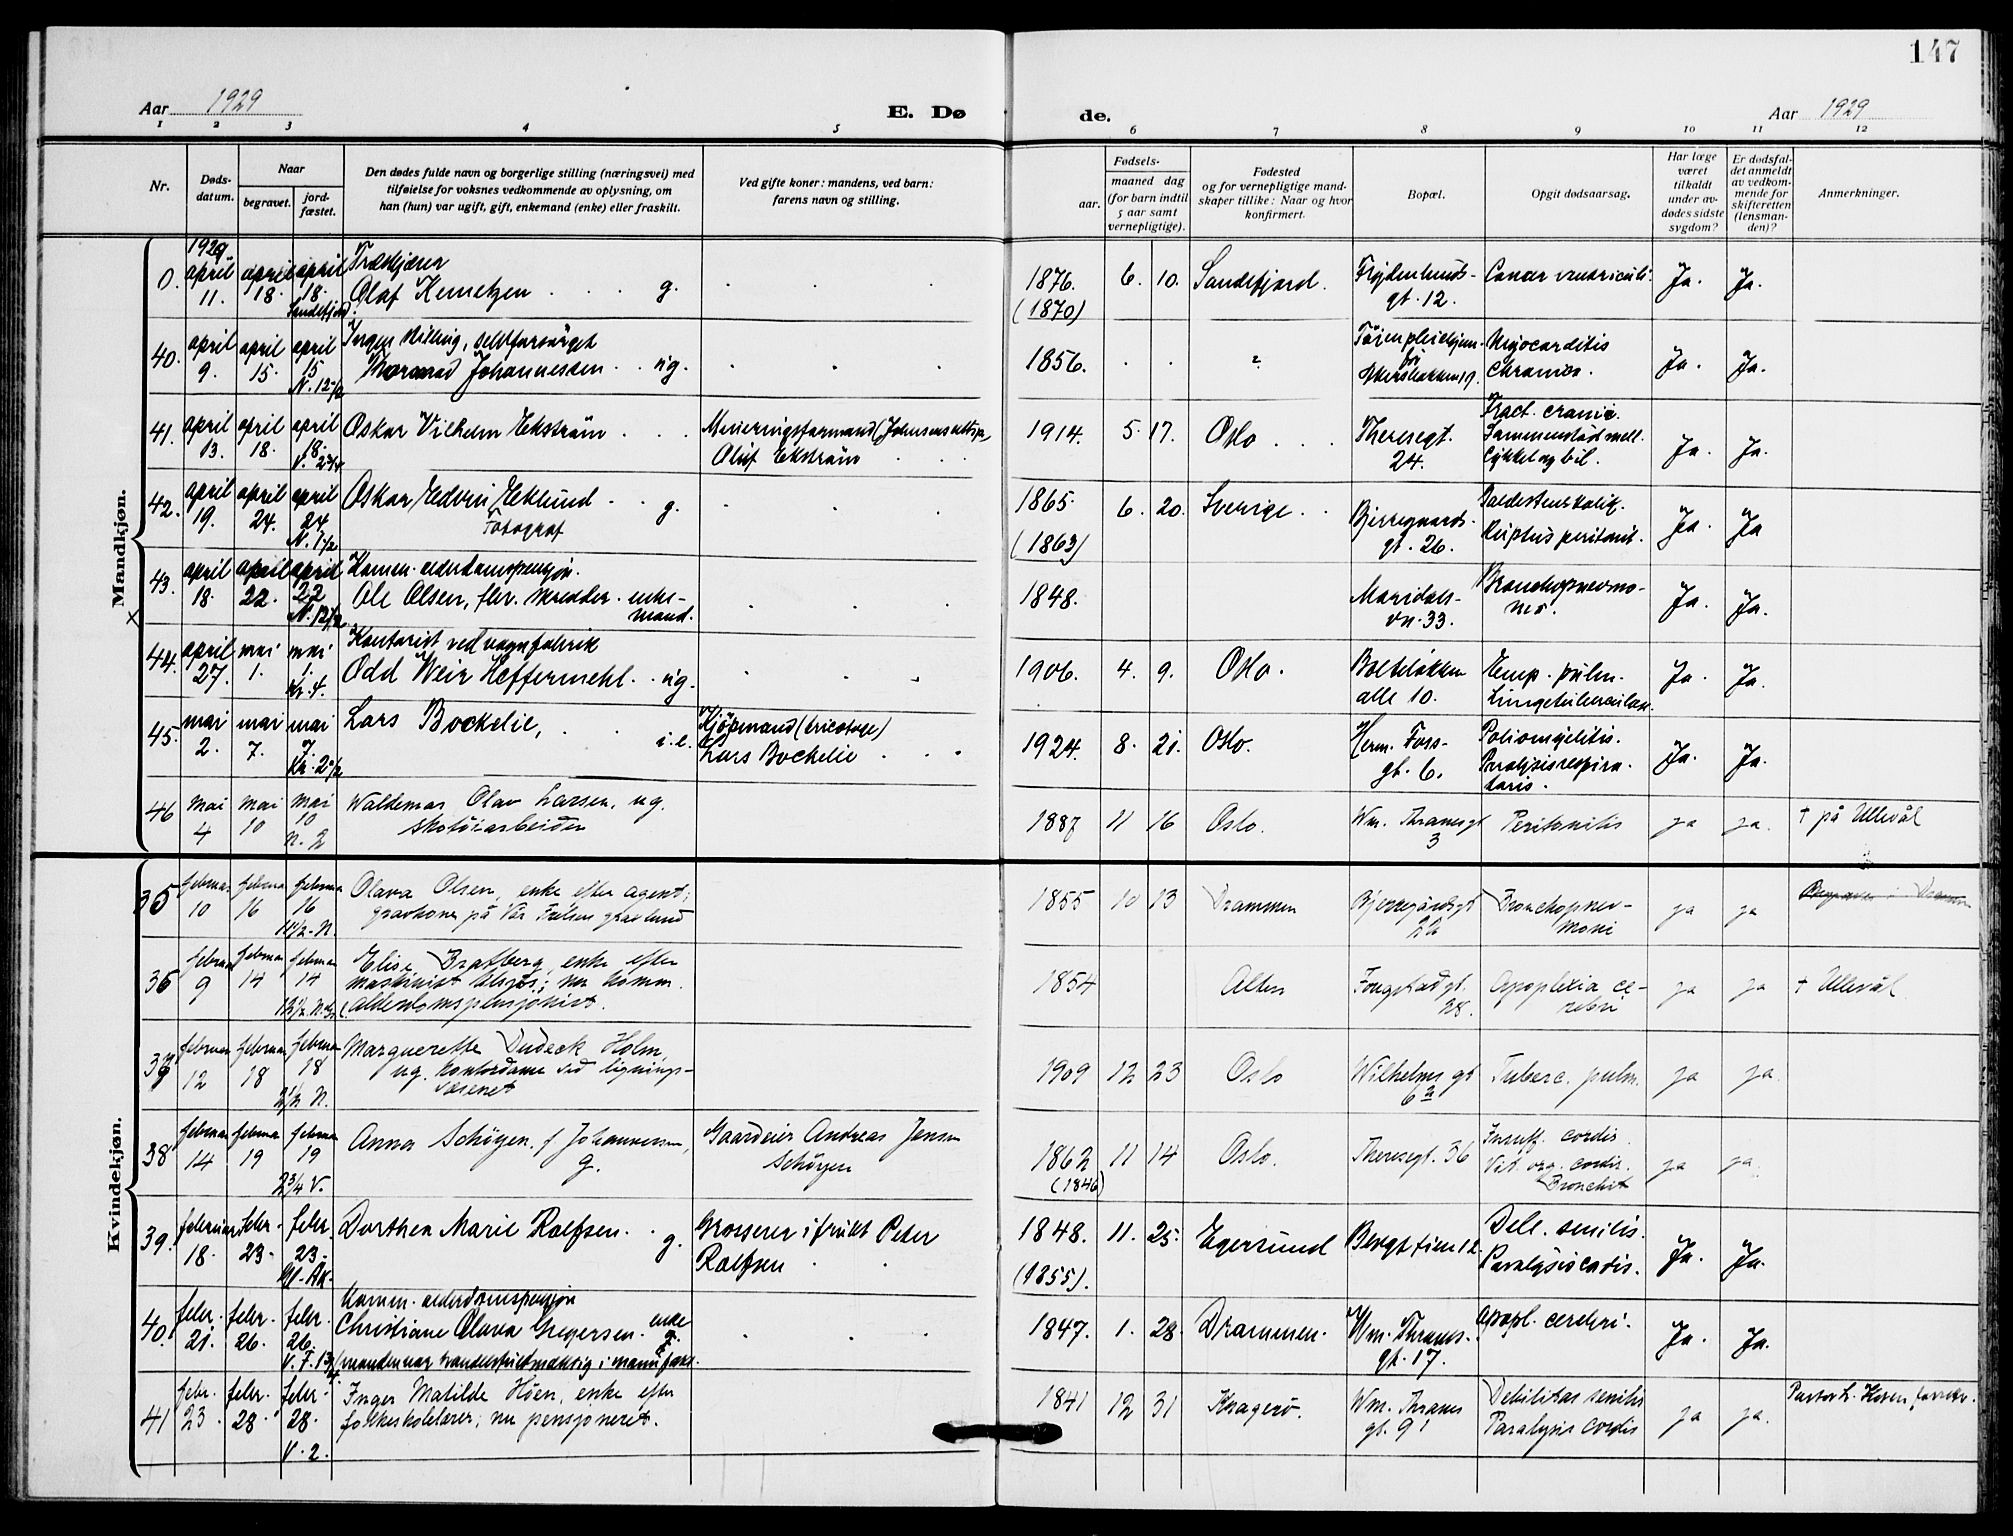 147
Aar 1929
E. Dø
de.
Aar 1929
1 2 3 4 5 6 7 8 9 10 11 12
Nr.
Døds-
datum.
Naar
begravet.
jord-
fæstet.
Den dødes fulde navn og borgerlige stilling (næringsvei) med
tilføielse for voksnes vedkommende av oplysning, om
han (hun) var ugift, gift, enkemand (enke) eller fraskilt.
Ved gifte koner: mandens, ved barn:
farens navn og stilling.
Fødsels-
aar.
maaned dag
(for barn indtil
5 aar samt
vernepligtige).
Fødested
og for vernepligtige mand-
skaper tillike: Naar og hvor
konfirmert.
Bopæl.
Opgit dødsaarsag.
Har læge
været
tilkaldt
under av-
dødes sidste
sygdom?
Er dødsfal-
det anmeldt
av vedkom-
mende for
skifteretten
(lensman-
den)?
Anmerkninger.
Mandkjøn.
0. 1929 april 11. april 18. april 18. Sandefjord
Olaf g. 1876. (1870) 6. 10. Sandefjord. gt. 12. Cancer ventriculi. Ja. Ja.
40. april 9. april 15. april 15 N. 12 1/2
Ingen stilling, selvforsörget
Johannessen ug. 1856. Myocarditis chronica. Ja. Ja.
41. april 13. april 18. april 18. V. 2 3/4
Oskar Vilhelm Ekström
Ekström 1914. 5. 17. Oslo Theresegt. 24. Fract. cranii. Sammenstöt mell. cykkel og bil. Ja. Ja.
42. april 19. april 24. april 24 N. 1 1/2
Oskar Edvin Eklund g.
Fotograf
1865. (1863) 6. 20. Sverige Bjerregaards- gt. 26. peritonit. Ja. Ja
43. april 18. april 22. april 22 N. 12 1/2
Komm. alderdomspensjon.
Ole Olsen, enke- mand.
1848. Maridals- vn. 33. Bronchopnevmo- ni. Ja. Ja.
X
44. april 27. mai 1. mai 1. Kr. 4.
Kontorist ved vognfabrik
Odd Weir Heffermehl ug.
1906. 4. 9. Oslo. Bolteløkken alle 10. pulm. Lungetuberculose. Ja. Ja.
45. mai 2. mai 7. mai 7. Kr. 2 1/2
Lars Bockelie, Kjöpmand (tricotage) Lars Bockelie
1924. 8. 21. Oslo. Herm. Foss- gt. 6. Poliomyelitis. Paralysis respira- toris. Ja. Ja.
46 mai 4 mai 10 mai 10 n. 2
Waldemar Olav Larsen, ug.
skotøiarbeider
1887 11 16 Oslo. Wm. Thranesgt 3 Peritonitis ja ja. † på Ullevål
Kvindekjøn.
35 februar 10 februar 16 februar 16 N.
Olava Olsen, enke efter agent;
gravkone på Vår Frelsers gravlund
1855 10 13 Drammen Bjerregårdsgt Bronchopnev- moni ja ja
36 februar 9 februar 14 februar 14
Elise Bratberg, enke efter
maskinist nu komm.
alderdomspensjonist.
1854 Alten Fougstadgt. 28. Apoplexia ce- rebri ja ja † Ullevål
37 februar 12 februar 18 februar 18 2 1/2 N.
Marguerette Dudeck Holm,
ug. kontordame ved lignings-
vesenet
1909 12 23 Oslo Wilhelms gt 6 Tuberc. pulm. ja ja.
38 februar 14 februar 19 februar 19 2 3/4 V.
Anna Schøyen, f Johannessen, g.
Gaardeier Andreas Jensen Schøyen
1862 (1846) 11 14 Oslo. Theresegt. 36 Insuff. cordis. Vit. org. cordis. Bronchit ja ja.
39. februar 18. febr. 23. febr. 23.
Dorthea Marie Rolfsen. g.
Grosserer i frukt Peter Rolfsen
1848. (1855). 11. 25. Egersund Bergstien 12. Deb. senilis. Paralysis cordis. Ja. Ja.
40. febr. 21. febr. 26. febr. 26.
Komm. alderdomspensjon
Christiane Olava Gregersen. enke
1847. 1. 28. Drammen. Wm. Thranes- gt. 17. Apopl. cerebri. Ja. Ja.
41 febr. 23 febr. 28. febr. 28. V. 2.
Inger Matilde Höen, enke efter
folkeskolelærer; nu pensjoneret.
1841 12 31 Kragerø. Wm. Thranes gt. 9 Debilitas senilis Paralysis cordis ja ja. Pastor